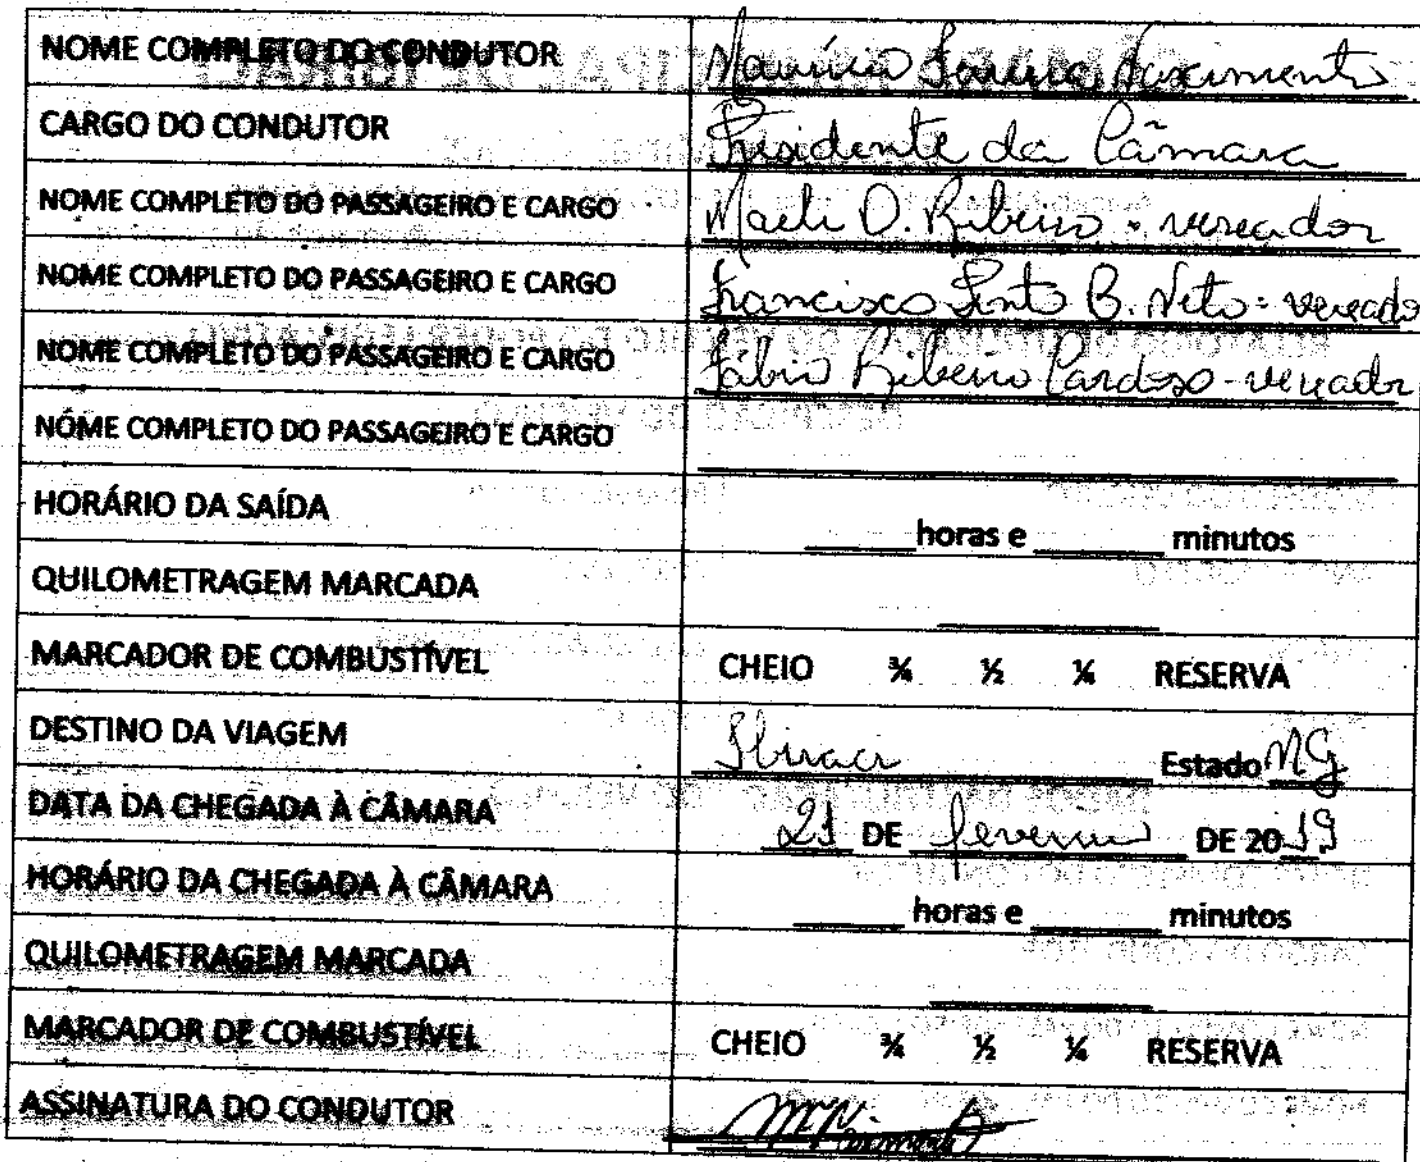 NOME COMPLETO DO CONDUTOR Maurício Faria Nascimento
CARGO DO CONDUTOR Presidente da Câmara
NOME COMPLETO DO PASSAGEIRO E CARGO Maeli O. Ribeiro - vereador
NOME COMPLETO DO PASSAGEIRO E CARGO Francisco Pinto B. Neto - vereado
NOME COMPLETO DO PASSAGEIRO E CARGO Fábio Ribeiro Cardoso - vereador
NOME COMPLETO DO PASSAGEIRO E CARGO
HORÁRIO DA SAÍDA ____ horas e ____ minutos
QUILOMETRAGEM MARCADA
MARCADOR DE COMBUSTÍVEL CHEIO ¾ ½ ¼ RESERVA
DESTINO DA VIAGEM Ibiraci Estado MG
DATA DA CHEGADA À CÂMARA 21 DE fevereiro DE 2019
HORÁRIO DA CHEGADA À CÂMARA ____ horas e ____ minutos
QUILOMETRAGEM MARCADA
MARCADOR DE COMBUSTÍVEL CHEIO ¾ ½ ¼ RESERVA
ASSINATURA DO CONDUTOR